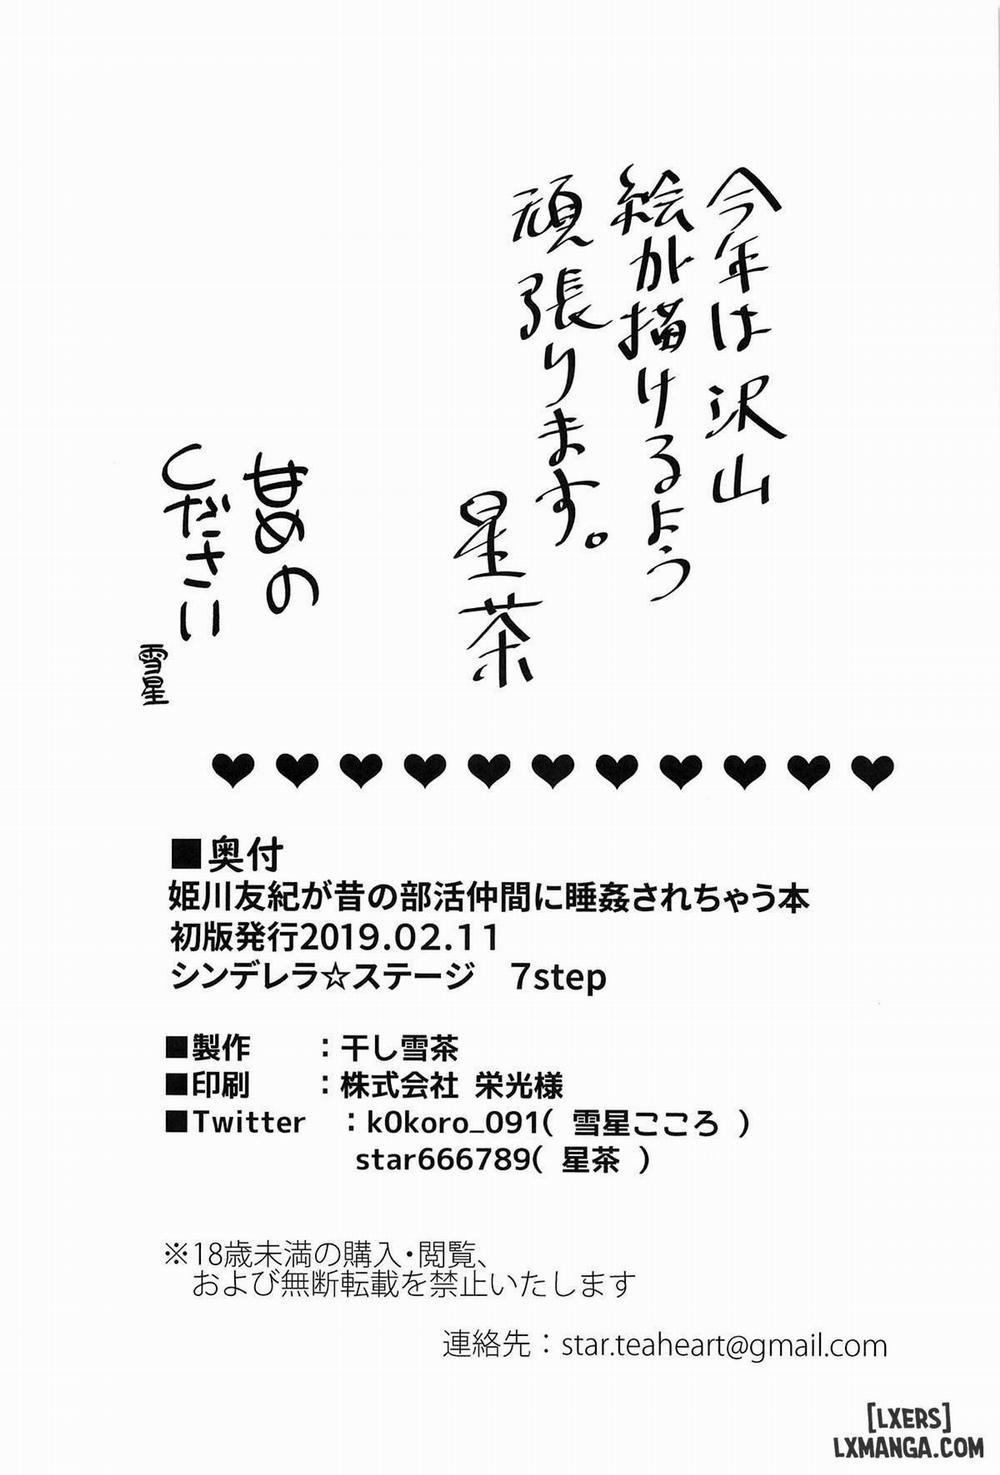 今年は沢山
絵が描けるよう
頑張ります。
星茶
甘めの
ください
雪星
■奥付
姫川友紀が昔の部活仲間に睡姦されちゃう本
初版発行2019.02.11
シンデレラ☆ステージ 7step
■製作 ：干し雪茶
■印刷 ：株式会社 栄光様
■Twitter ：k0koro_091( 雪星こころ )
star666789( 星茶 )
※18歳未満の購入・閲覧、
および無断転載を禁止いたします
連絡先：star.teaheart@gmail.com
[LXERS]
LXMANGA.COM